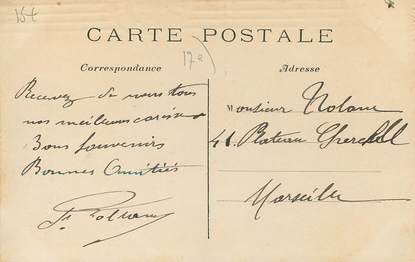 15€
CARTE POSTALE
17e
Correspondance
Adresse
Recevez de nous tous
nos meilleures caresses
Bons souvenirs
Bonnes Amitiés
Monsieur Nolane
41. Plateau Cherchell
Marseille